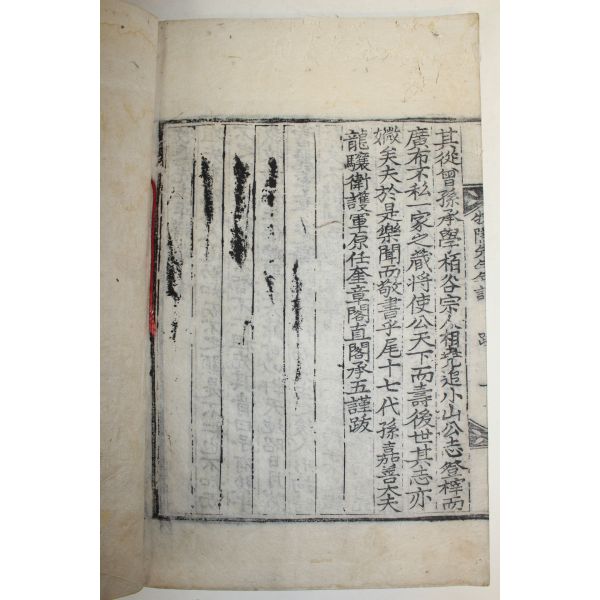 其從曾孫承學栢谷宗人相堯追小山公志登梓而
廣布不私一家之藏將使公天下而壽後世其志亦
微矣夫於是樂聞而敬書乎尾十七代孫嘉善大夫
龍驤衛護軍原任奎章閣直閣承五謹跋
牧隱先生年譜 跋 一